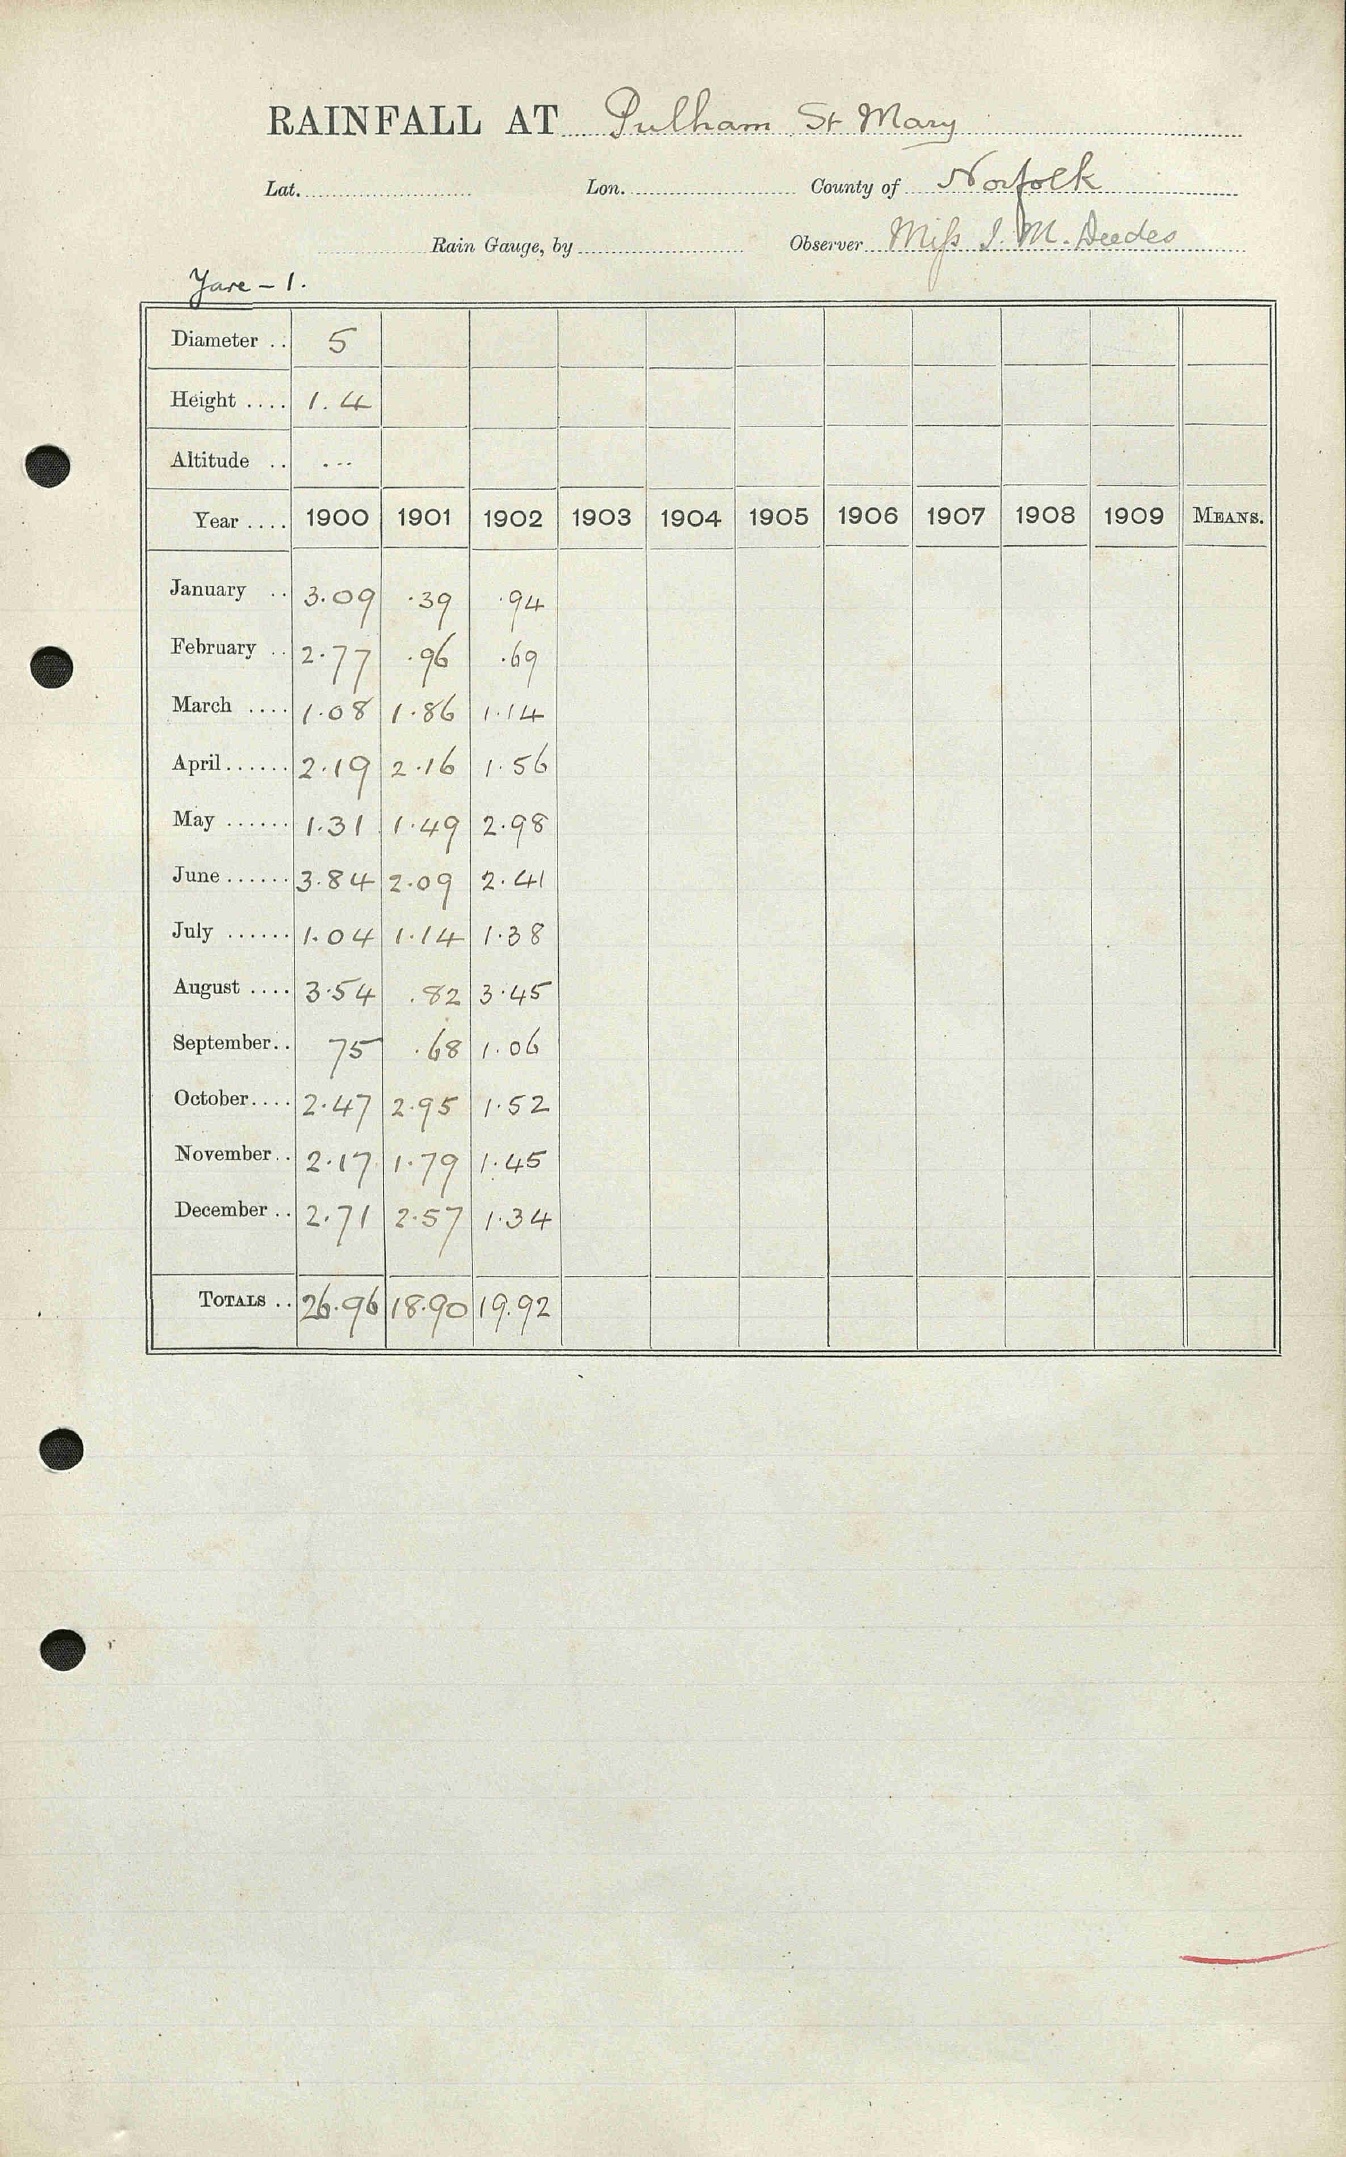 RAINFALL AT Pulham St Mary
Lat. Lon. County of Norfolk
Rain Gauge, by Observer Miss I. M. Deedes
Yare - 1.
Diameter .. 5
Height .... 1.4
Altitude .. ...
Year .... 1900 1901 1902 1903 1904 1905 1906 1907 1908 1909 MEANS.
January .. 3.09 .39 .94
February .. 2.77 .96 .69
March .... 1.08 1.86 1.14
April...... 2.19 2.16 1.56
May ...... 1.31 1.49 2.98
June...... 3.84 2.09 2.41
July ...... 1.04 1.14 1.38
August .... 3.54 .82 3.45
September.. 75 .68 1.06
October.... 2.47 2.95 1.52
November.. 2.17 1.79 1.45
December .. 2.71 2.57 1.34
TOTALS .. 26.96 18.90 19.92